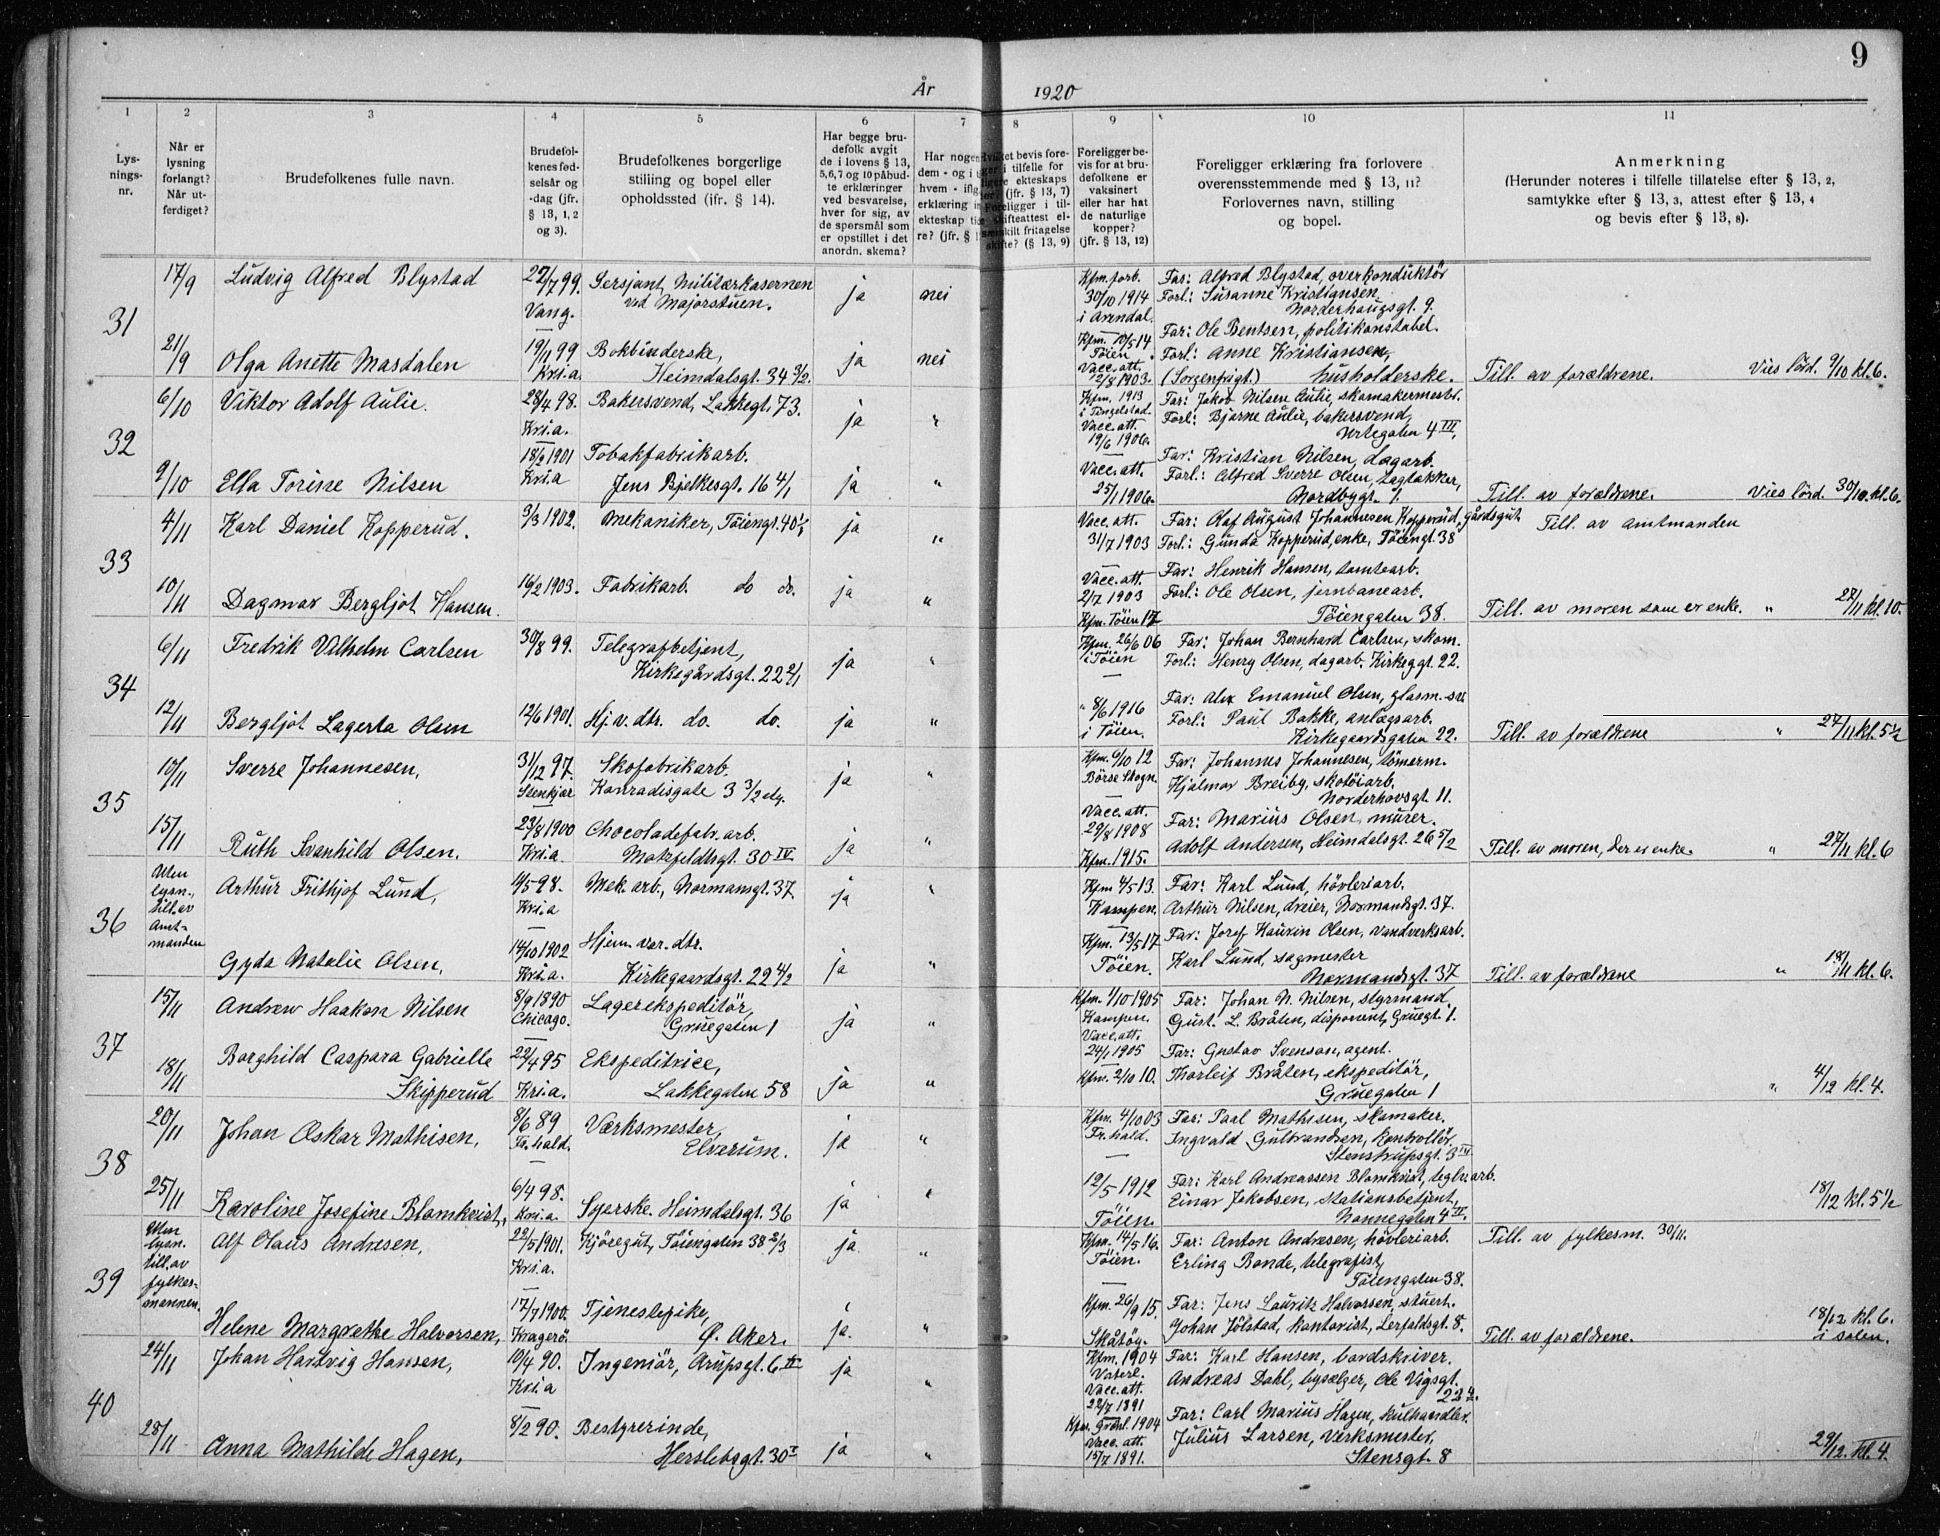 9
År 1920
1 2 3 4 5 6 7 8 9 10 11
Lys-
nings-
nr.
Når er
lysning
forlangt?
Når ut-
ferdiget?
Brudefolkenes fulle navn.
Brudefol-
kenes fød-
selsår og
-dag (jfr.
§ 13, 1, 2
og 3).
Brudefolkenes borgerlige
stilling og bopel eller
opholdssted (jfr. § 14).
Har begge bru-
defolk avgit
de i lovens § 13,
5,6,7 og 10 påbud-
te erklæringer
ved besvarelse,
hver for sig, av
de spørsmål som
er opstillet i det
anordn. skema?
Har nogen
dem - og i
hvem - ifl.
erklæring in
ekteskap
re? (jfr. §
Hvilket bevis fore-
i tilfelle for
ekteskaps
(jfr. § 13, 7)
Foreligger i til-
skifteattest el-
særskilt fritagelse
skifte? (§ 13, 9)
Foreligger be-
vis for at bru-
defolkene er
vaksinert
eller har hat
de naturlige
kopper?
(jfr. § 13, 12)
Foreligger erklæring fra forlovere
overensstemmende med § 13, 11?
Forlovernes navn, stilling
og bopel.
Anmerkning
(Herunder noteres i tilfelle tillatelse efter § 13, 2,
samtykke efter § 13, 3, attest efter § 13, 4
og bevis efter § 13, 8).
31
17/9 Ludvig Alfred Blystad 27/7 99. Sersjant, Militærkasernen ja nei Kfm.forb. Far: Alfred Blystad, overkonduktör
Vang. ved Majorstuen. 30/10 1914 Forl: Susanne Kristiansen,
i Arendal. Norderhaugsgt. 9.
21/9 Olga Anette Masdalen 19/11 99 Bokbinderske, ja nei Kfm. 10/5 14 Far: Ole Bentsen, politikonstabel.
Kri.a. Heimdalsgt. 34 3/2. Töien. Forl: Anne Kristiansen,
Vacc.att. 12/8 1903. (Sorgenfrigt.) husholderske. Till. av forældrene. Vies lörd. 9/10 kl. 6.
32
6/10 Viktor Adolf Aulie. 28/4 98. Bakersvend, Lakkegt. 73. ja " Kfm. 1913 Far: Jakob Nilsen Aulie, skomakermestr.
Kri.a. i Tingelstad. Forl: Bjarne Aulie, bakersvend,
Vacc.att. 19/6 1906. Urtegaten 4 III,
9/10 Ella Torine Nilsen 18/2 1901 Tobakfabrikarb. ja " Vacc.att. Far: Kristian Nilsen, dagarb.
Kri.a Jens Bjelkesgt. 16 4/1 25/1 1906. Forl: Alfred Sverre Olsen, tagtækker,
Nordbygt. 1. Till. av forældrene. Vies lörd. 30/10 kl. 6.
33
4/11 Karl Daniel Kopperud. 3/3 1902. Mekaniker, Töiengt. 40 1/2 ja " Vacc.att. Far: Olaf August Johannesen Kopperud, gårdsgut Till. av Amtmanden
31/7 1903 Forl: Gunda Kopperud, enke, Töiengt. 38
10/11 Dagmar Bergljot Hansen. 16/2 1903. Fabrikarb. do do. ja " Vacc.att. Far: Henrik Hansen, tomtearb.
2/7 1903 Forl: Ole Olsen, jernbanearb.
Kfm. Töien 17 Töiengaten 38. Till. av moren som er enke. " 28/11 kl. 10.
34
6/11 Fredrik Vilhelm Carlsen 30/8 99. Telegrafbetjent, ja " Kfm. 26/6 06 Far: Johan Bernhard Carlsen, skom.
Kirkegårdsgt. 22 2/1 i Töien Forl: Henry Olsen, dagarb. Kirkeggt. 22.
12/11 Bergljot Lagerta Olsen 12/6 1901. Hj.v. dtr. do. do. ja " " 8/6 1916 Far: Alex Emanuel Olsen, glasm. sv.
i Töien. Forl: Paul Bakke, anlægsarb.
Kirkegaardsgaten 22. Till. av forældrene " 27/11 kl. 5 1/2
35
10/11 Sverre Johannesen, 31/12 97. Skofabrikarb. ja " Kfm. 6/10 12 Far: Johannes Johannesen, tömerm.
Steenkjær Konradisgate 3 3/2 etg. Börse Skogn. Hjalmar Breiby, skotöiarb.
Norderhovsgt. 11.
15/11 Ruth Svanhild Olsen. 23/8 1900 Chocoladefabr. arb. ja " Vacc.att. 29/8 1908 Far: Marius Olsen, murer.
Kri.a. Motzfeldtsgt. 30 IV. Kfm. 1915. Adolf Andersen, Heimdalsgt. 26 5/2 Till. av moren, der er enke. " 27/11 kl. 6
36
Uten
lysn.,
till. av
Amt-
manden
Arthur Frithjof Lund, 4/5 98. Mek. arb, Normansgt. 37. ja " Kfm 4/5 13. Far: Karl Lund, hövleriarb.
Kri.a Kampen. Arthur Nilsen, dreier, Normandsgt. 37.
Gyda Natalie Olsen, 14/10 1902 Hjem. vær. dtr. ja " Kfm. 13/5 17 Far: Josef Kaurin Olsen, vandverksarb.
Kri.a. Kirkegaardsgt. 22 4/2 Töien. Karl Lund, sagmester
Normandsgt. 37 Till. av forældrene " 18/11 kl. 6.
37
15/11 Andrew Haakon Nilsen 8/9 1890 Lagerekspeditör, ja " Kfm. 1/10 1905 Far: Johan N. Nilsen, styrmand
Chicago. Gruegaten 1 Kampen. Gust. L. Bråten, disponent, Gruegt. 1.
18/11 Borghild Caspara Gabrielle 22/4 95 Ekspeditrice, Vacc.att. 24/1 1905 Far: Gustav Svenson, agent.
Skipperud Kri.a. Lakkegaten 58 ja " Kfm. 2/10 10. Thorleif Bråten, ekspeditör,
Gruegaten 1 " 4/12 kl. 4.
38
20/11 Johan Oskar Mathisen, 8/6 89 Værksmester, ja " Kfm. 4/10 03 Far: Paul Mathisen, skomaker.
Fr.hald. Elverum. Fr.hald. Ingvald Gulbrandsen, kontrollör.
Stenstrupsgt. 3 IV
25/11 Karoline Josefine Blomkvist, 6/4 98. Syerske. Heimdalsgt. 36 ja " 12/5 1912 Far: Karl Andreassen Blomkvist, teglv.arb.
Kri.a. Töien. Einar Jakobsen, stationsbetjent,
Nonnegaten 4 IV. 18/12 kl. 5 1/2
39
Uten
lysn.
till. av
fylkes-
mannen.
Alf Olaus Andresen, 22/5 1901. Kjöregut, Töiengaten 38 2/3 ja. " Kfm. 14/5 16. Far: Anton Andresen, hövleriarb. Till. av fylkesm. 30/11.
Kri.a. Töien. Erling Bonde, telegrafist,
Töiengaten 38.
Helene Margrethe Halvorsen, 17/7 1900. Tjenestepike, ja. " Kfm. 26/9 15. Far: Jens Lauritz Halvorsen, stuert.
Kragerö Ø. Aker. Skåtöy. Johan Jölstad, kontorist, Lerfaldsgt. 8. Till. av forældrene. 18/12 kl. 6.
i salen.
40
24/11 Johan Hartvig Hansen, 10/4 90. Ingeniör, Arupsgt. 6 II ja " Kfm. 1904 Far: Karl Hansen, bordskriver.
Kri.a Vaterl. Andreas Dahl, bysælger, Ole Vigsgt.
Vacc.att. 22/7 1891 22 4/
28/11 Anna Mathilde Hagen, 8/2 90. Bestyrerinde, ja " Kfm. Grönl. 1904 Far: Carl Marius Hagen, kulhandler.
Herslebsgt. 30 I Vacc.att. 15/7 1891. Julius Larsen, Verksmester,
Stensgt. 8 29/12. kl. 4.